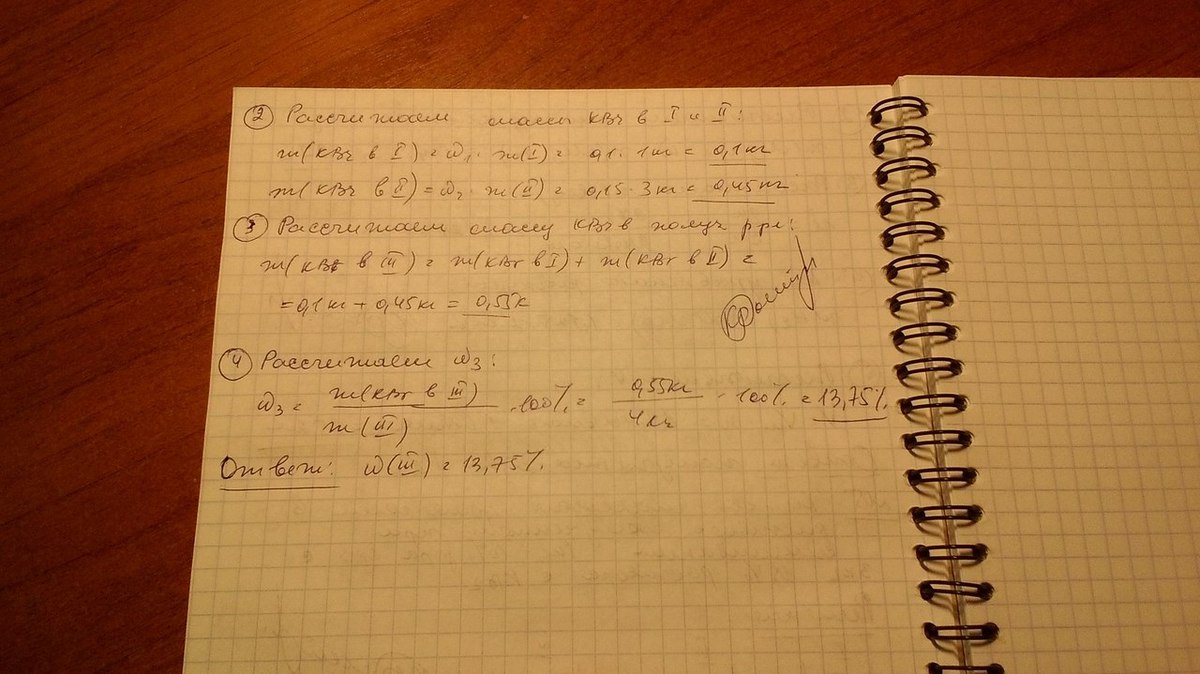 ② Рассчитаем массы KBr в I и II:
m(KBr в I) = ω₁ · m(I) = 0,1 · 1кг = 0,1кг
m(KBr в II) = ω₂ · m(II) = 0,15 · 3кг = 0,45кг
③ Рассчитаем массу KBr в получ р-ре:
m(KBr в III) = m(KBr в I) + m(KBr в II) =
= 0,1кг + 0,45кг = 0,55к
④ Рассчитаем ω₃:
ω₃ = m(KBr в III) / m(III) · 100% = 0,55кг / 4кг · 100% = 13,75%
Ответ: ω(III) = 13,75%.